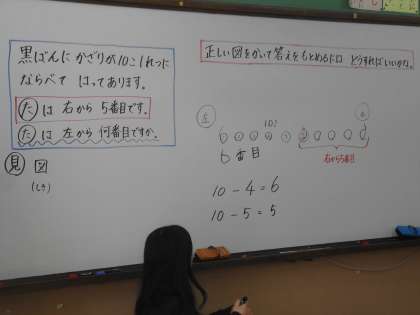 黒ばんに かざりが10こ 1れつに
ならべて はってあります。
た は 右から 5番目です。
た は 左から 何番目ですか。
見 図
(しき)
正しい図をかいて答えをもとめるには どうすればいいかな。
左
右
10こ
6 番目
右から5番目
10 - 4 = 6
10 - 5 = 5